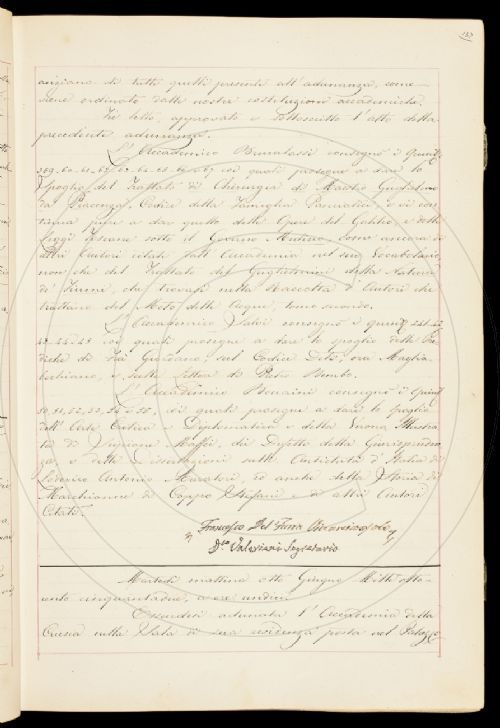 157
anziano di tutti quelli presenti all'adunanza, come
viene ordinato dalle nostre costituzioni accademiche.
Fu letto, approvato e sottoscritto l'atto della
precedente adunanza.
L'Accademico Brucalassi consegnò i Quint.
59, 60, 61, 62, 63, 64, 65, 66, 67 coi quali prosegue a dare lo
Spoglio del Trattato di Chirurgia di Maestro Guglielmo
da Piacenza, Codice della Famiglia Panciatichi, e vi con-
tinua pure a dar quello delle Opere del Galileo e delle
Leggi Toscane sotto il Governo Mediceo, come ancora di
altri Autori citati dall'Accademia nel suo Vocabolario,
non che del Trattato del Guglielmini della Natura
de' Fiumi, che trovasi nella Raccolta d'Autori che
trattano del Moto delle Acque, tomo secondo.
L'Accademico consegnò i quint. 241, 42,
43, 44, 45 coi quali prosegue a dare lo spoglio delle Pre-
diche di Fra Giordano, sul Codice Diti, ora Maglia-
bechiano, e sulle Lettere di Pietro Bembo.
L'Accademico Bencini consegnò i Quint.
50, 51, 52, 53, 54 e 55, coi quali prosegue a dare lo spoglio
dell'Arte Critica e Diplomatica e della Verona Illustra-
ta di Scipione Maffei, dei Difetti della Giurispruden-
za e delle Dissertazioni sulle Antichità d'Italia di
Lodovico Antonio Muratori, ed anche della Storia di
Marchionne di Coppo Stefani e di altri Autori
Citati.
Francesco Del Furia
D.co Valeriani Segretario
Martedì mattina otto Giugno Mille otto-
cento cinquantadue, a ore undici
Essendosi adunata l'Accademia della
Crusca nella Sala di sua residenza posta nel Palazzo